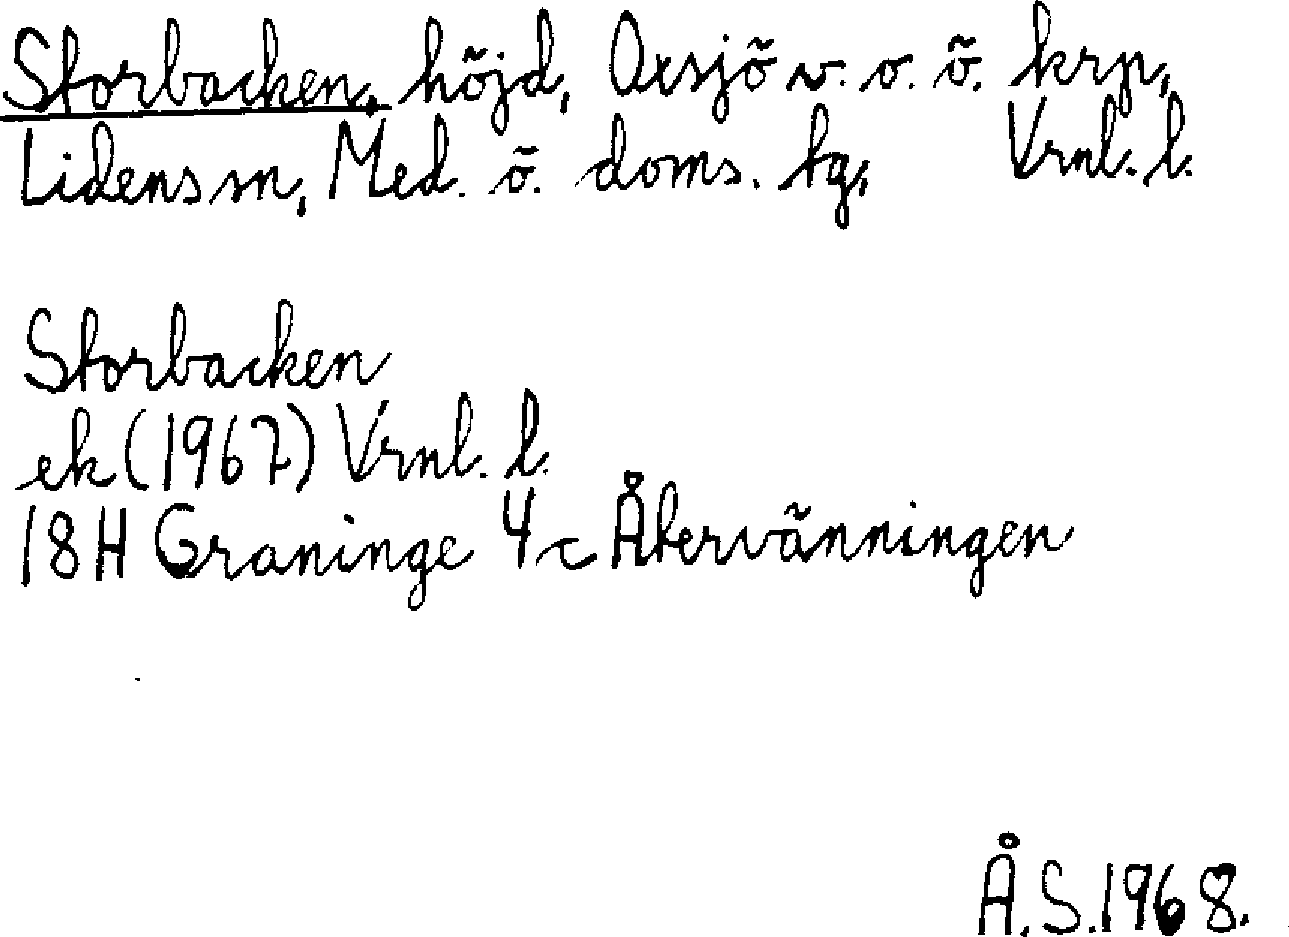 Storbacken, höjd, Oxsjö v. o. ö. krp,
Lidens sn, Med. ö. doms. tg, Vrnl. l.
Storbacken
ek (1967) Vrnl. l.
18H Graninge 4c Återvänningen
Å.S.1968.